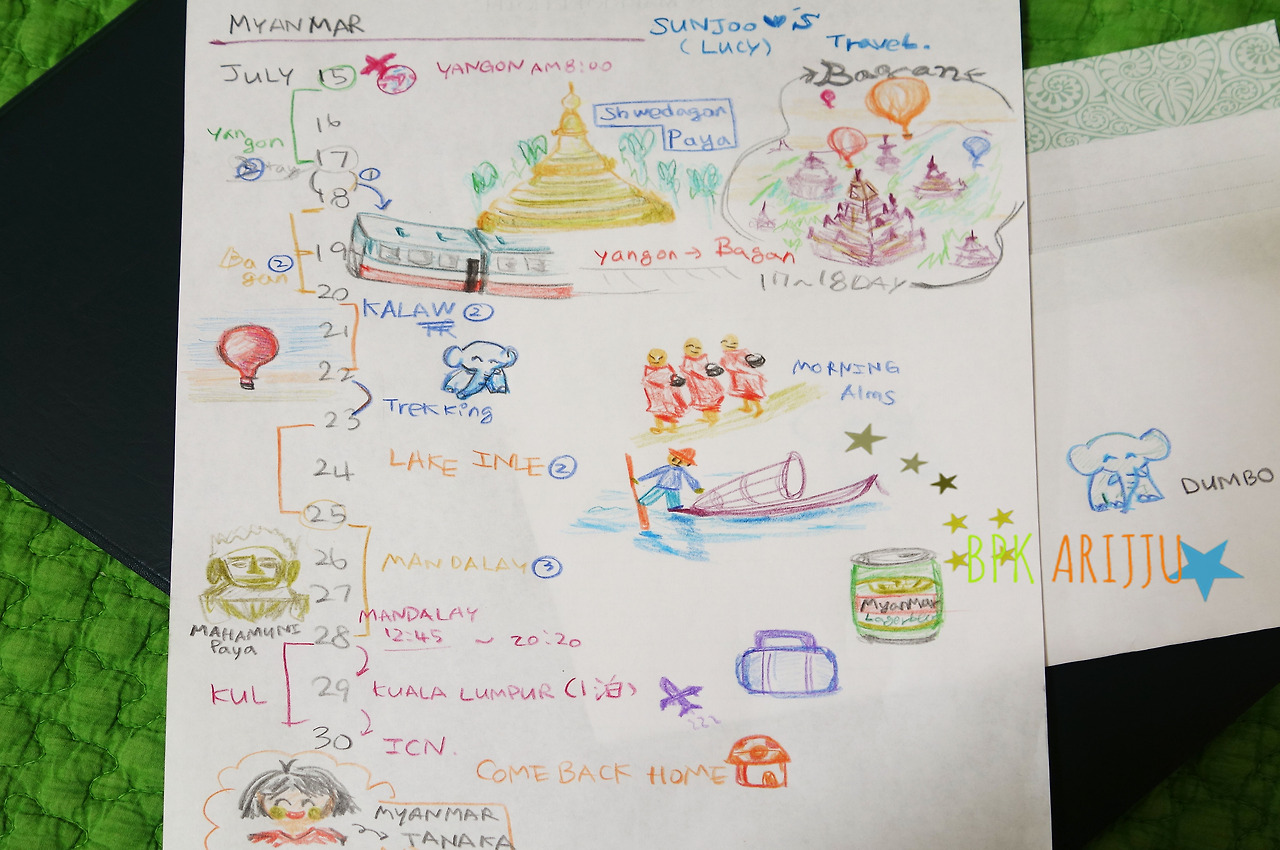 MYANMAR
SUNJOO♥'S
(LUCY)
Travel.
JULY 15
YANGON AM8:00
Bagan
16
Shwedagon
Paya
yan
gon
17
②
18
①
19
Ba
gan ②
yangon → Bagan
17~18DAY
20
KALAW ②
TR
21
22
MORNING
Alms
23
Trekking
24
LAKE INLE ②
25
DUMBO
BPK ARIJJU
26
MANDALAY ③
27
Myanmar
Lager
MANDALAY
MAHAMUNI
Paya
28
12:45 ~ 20:20
KUL
29
KUALA LUMPUR (1泊)
30
ICN.
COME BACK HOME
MYANMAR
TANAKA